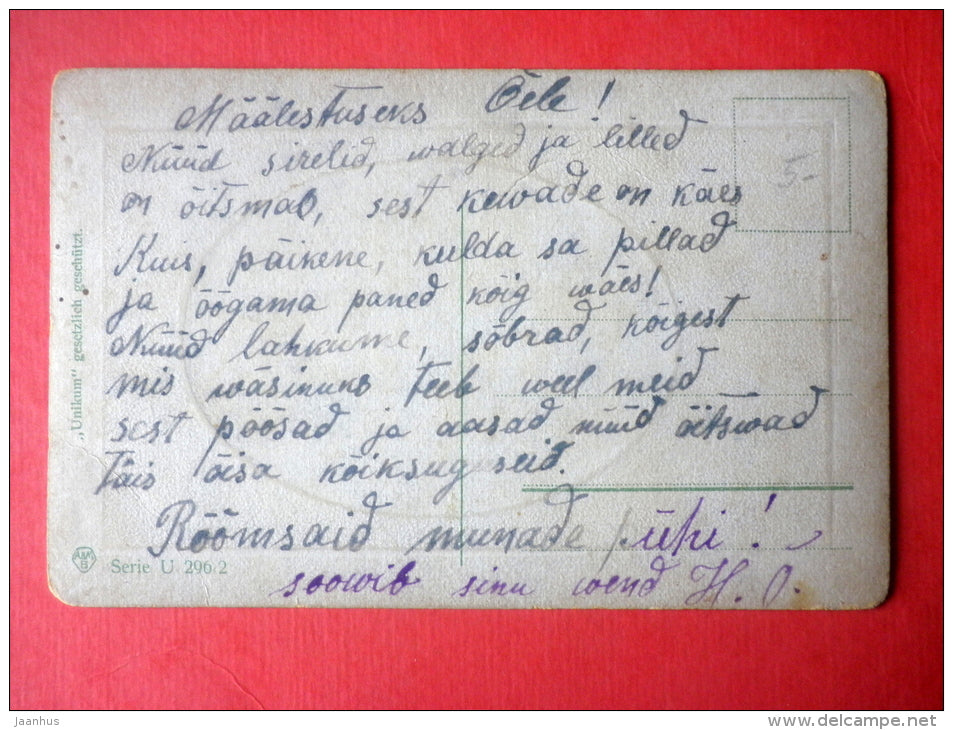 Määlestuseks Õele!
Nüüd sirelid, walged ja lilled
on õitsmas, sest kewade on käes
Kuis, päikene, kulda sa pillad
ja öögama paned kõig wäes!
Nüüd lahkume, sõbrad, kõigest
mis wäsinuks teeb weel meid
sest põõsad ja aasad nüüd õitswad
täis õisa kõiksuguseid.
Rõõmsaid munade pühi!
soowib sinu wend H. O.
5-
„Unikum" gesetzlich geschützt.
Serie U 296/2
Jaanhus
www.delcampe.net